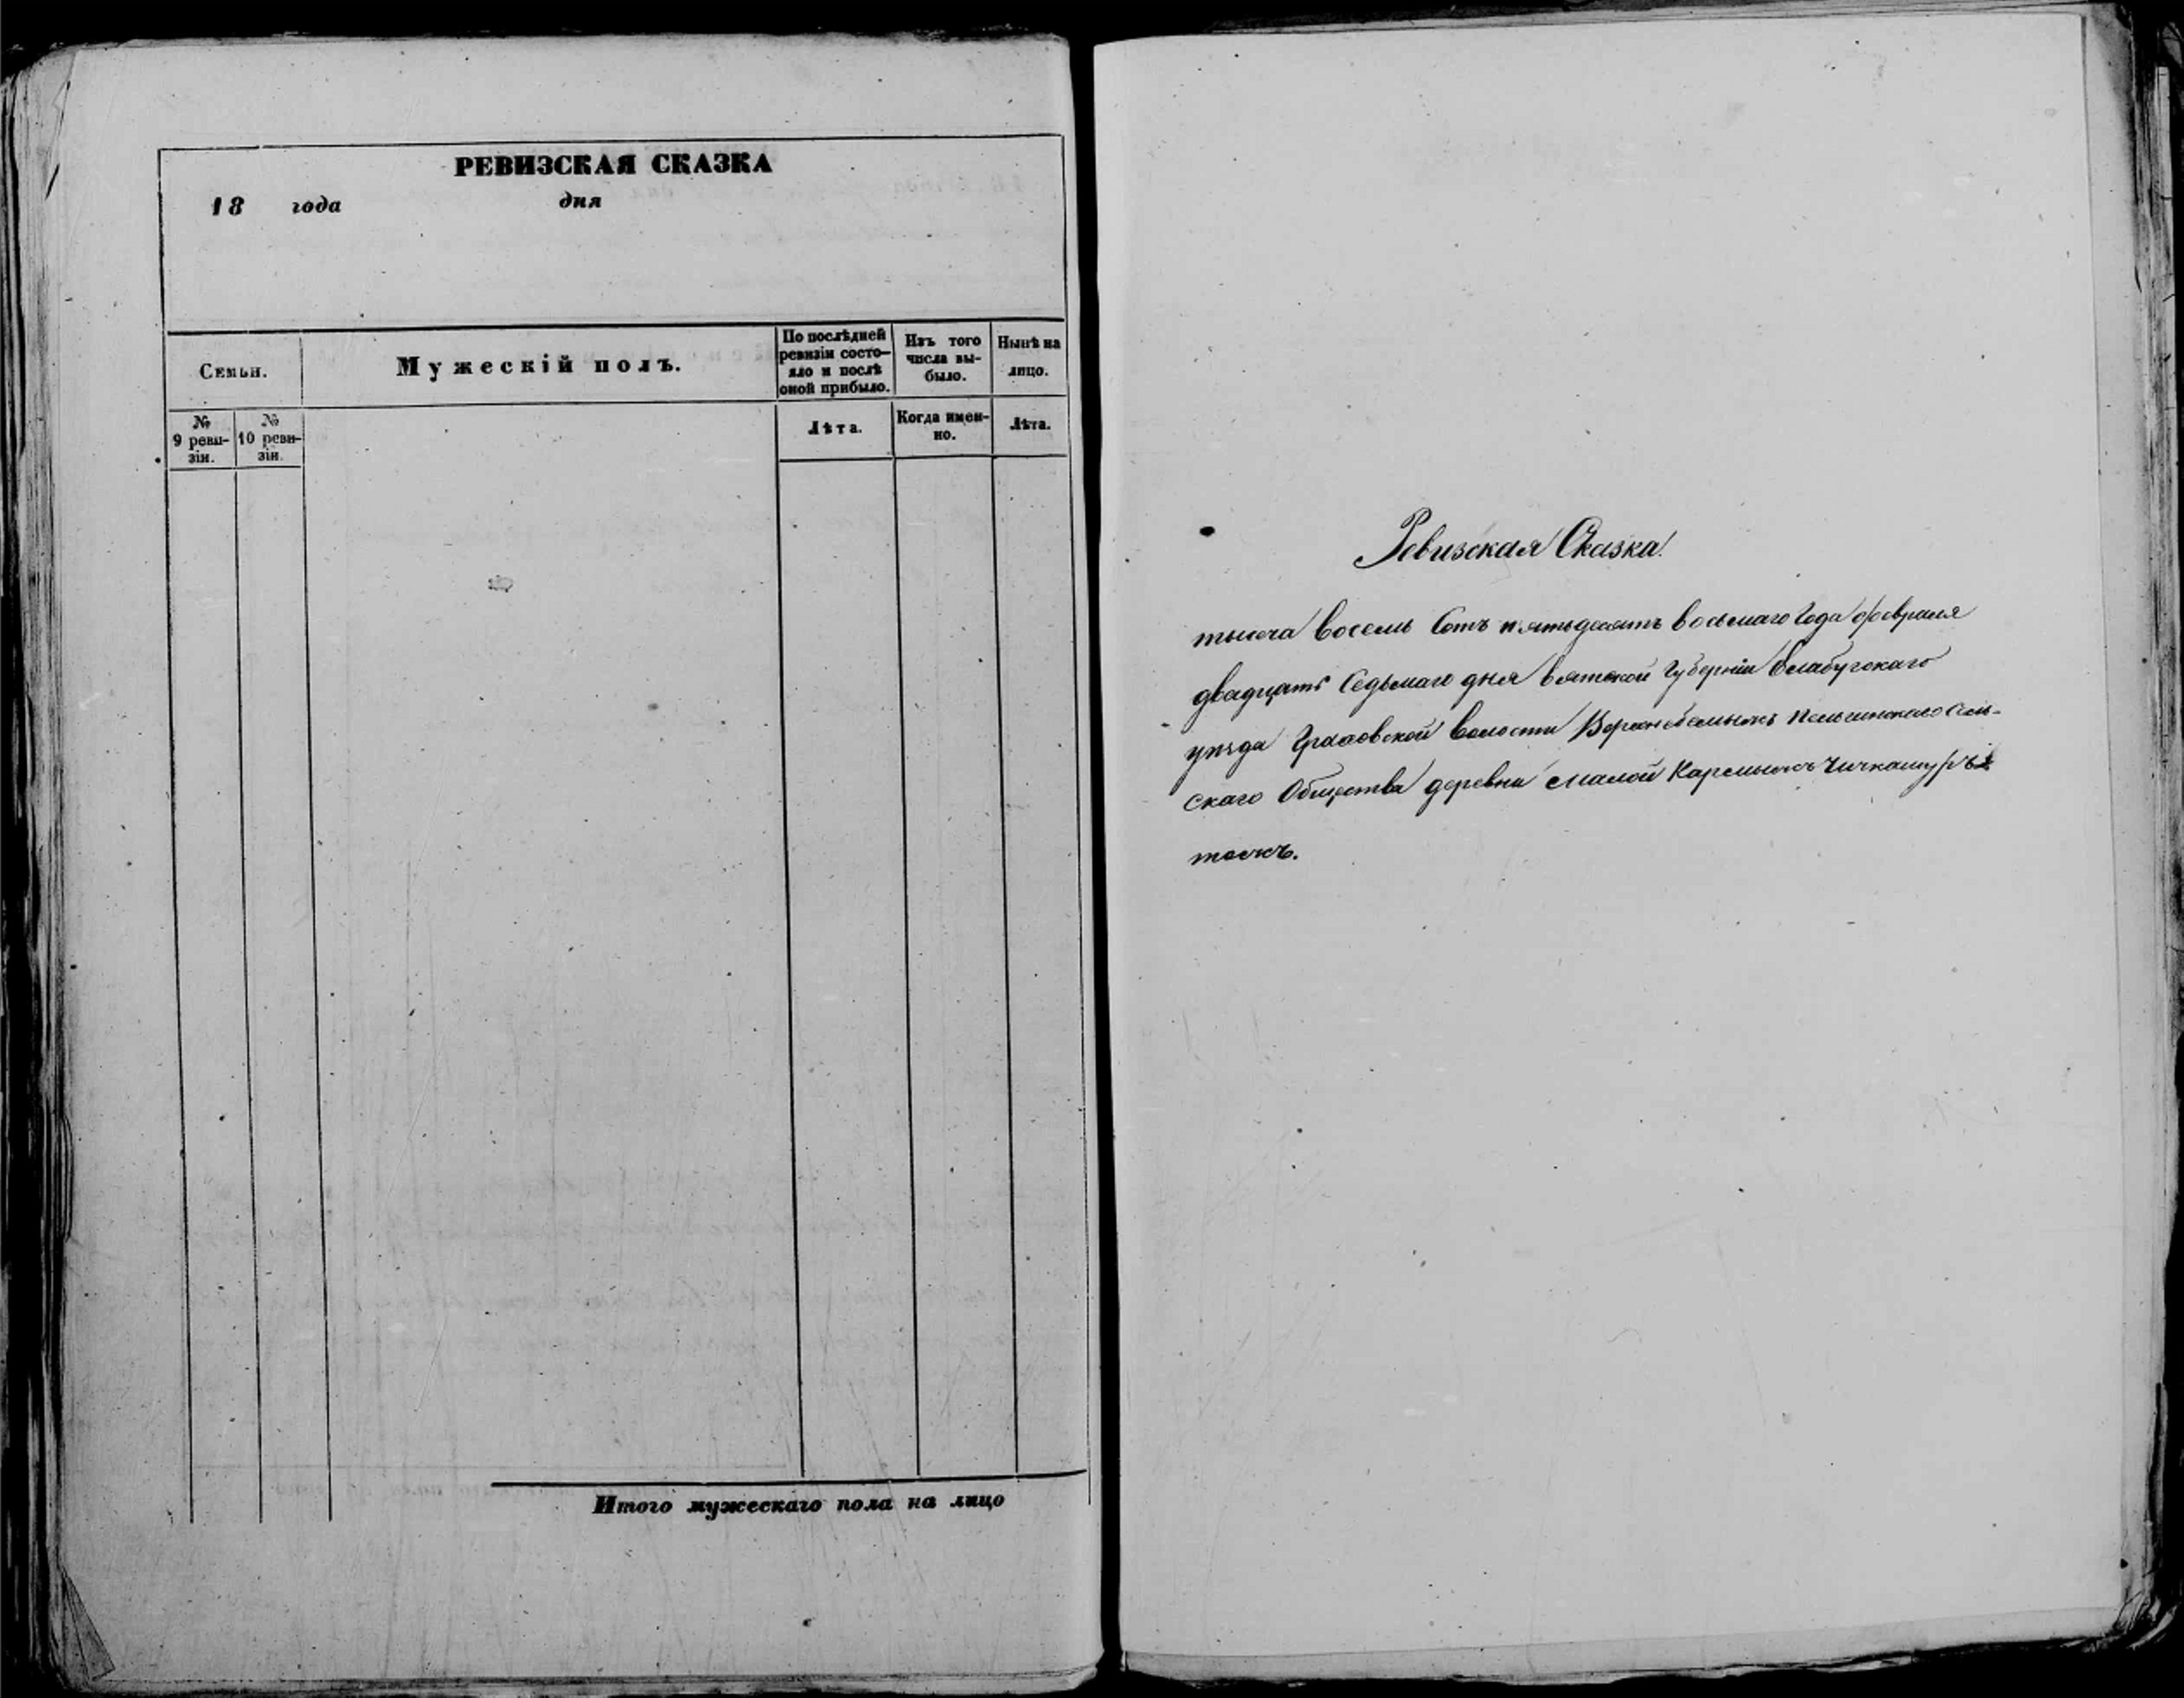 РЕВИЗСКАЯ СКАЗКА
18 года дня
Семьи.
Мужескій полъ.
По послѣдней ревизіи состо-
яло и послѣ
оной прибыло.
Изъ того
числа вы-
было.
Нынѣ на
лицо.
№
9 реви-
зіи.
№
10 реви-
зіи.
Лѣта.
Когда имен-
но.
Лѣта.
Итого мужескаго пола на лицо
Ревизская Сказка.
тысеча восемь Сотъ пятьдесятъ восьмаго Года февраля
двадцать Седьмаго дня вятской Губерніи Елабугскаго
уѣзда Граховской волости Пельгинскаго Сель-
скаго Общества деревни Малой Кармыжъ Чичкашуръ
тожъ.